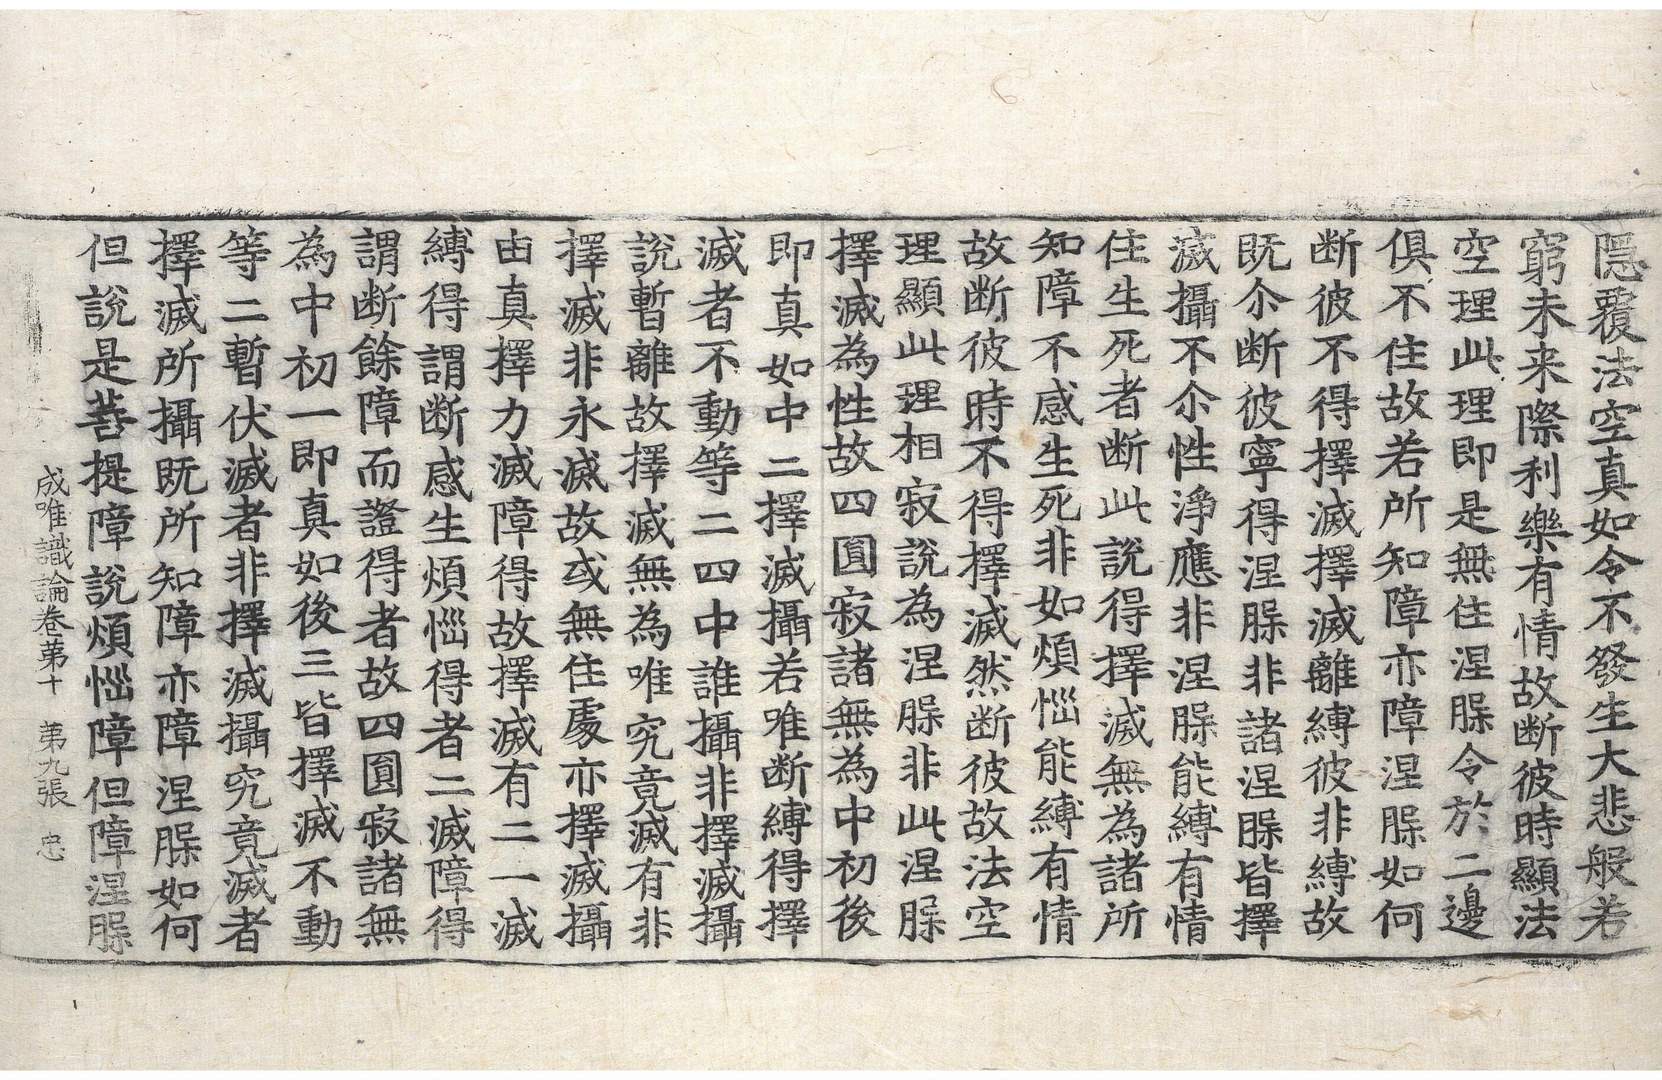 隱覆法空真如令不發生大悲般若
窮未来際利樂有情故断彼時顯法
空理此理即是無住涅𦙾令於二邊
俱不住故若所知障亦障涅𦙾如何
断彼不得擇滅擇滅離縛彼非縛故
既尒断彼寧得涅𦙾非諸涅𦙾皆擇
滅攝不尒性淨應非涅𦙾能縛有情
住生死者断此說得擇滅無為諸所
知障不感生死非如煩惱能縛有情
故断彼時不得擇滅然断彼故法空
理顯此理相寂說為涅𦙾非此涅𦙾
擇滅為性故四圓寂諸無為中初後
即真如中二擇滅攝若唯断縛得擇
滅者不動等二四中誰攝非擇滅攝
說暫離故擇滅無為唯究竟滅有非
擇滅非永滅故或無住處亦擇滅攝
由真擇力滅障得故擇滅有二一滅
縛得謂断感生煩惱得者二滅障得
謂断餘障而證得者故四圓寂諸無
為中初一即真如後三皆擇滅不動
等二暫伏滅者非擇滅攝究竟滅者
擇滅所攝既所知障亦障涅𦙾如何
但說是菩提障說煩惱障但障涅𦙾
成唯識論卷第十　第九張　忠